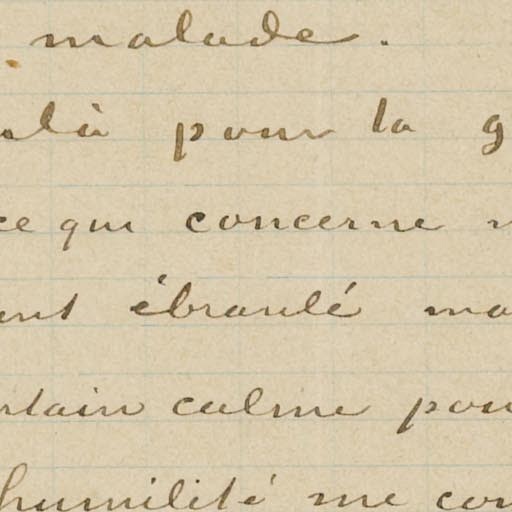 malade.
là pour la g
ce qui concerne
ébranlé
calme pou
humilité me con